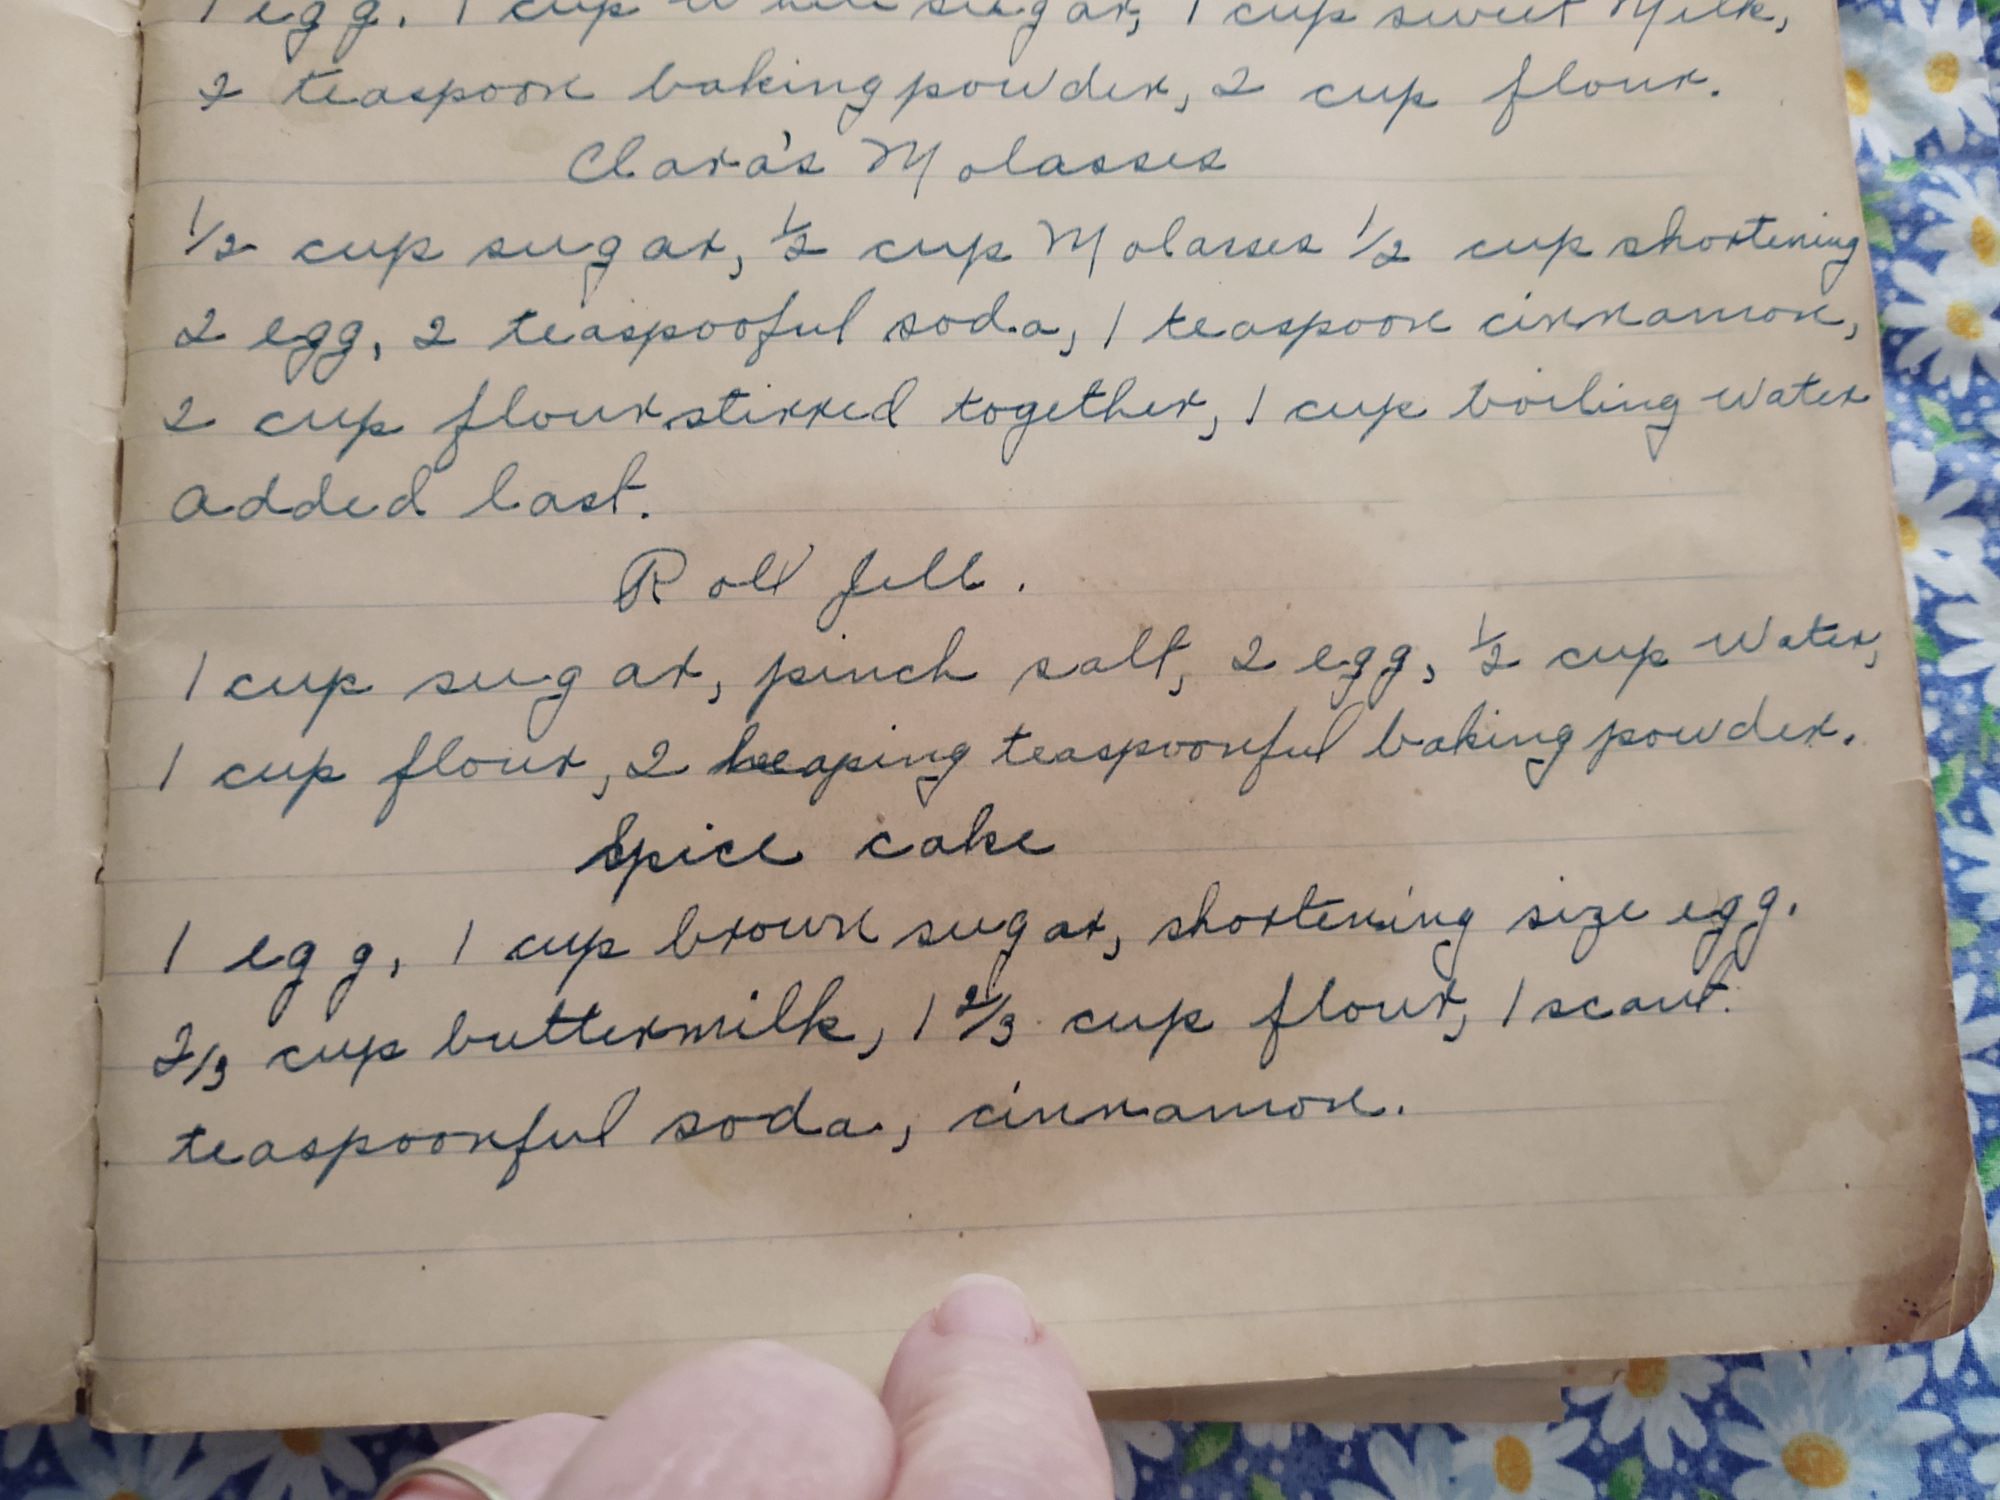 1 egg, 1 cup white sugar, 1 cup sweet Milk,
2 teaspoon baking powder, 2 cup flour.
Clara's Molasses
1/2 cup sugar, 1/2 cup Molasses 1/2 cup shortening
2 egg, 2 teaspooful soda, 1 teaspoon cinnamon,
2 cup flour stirred together, 1 cup boiling water
added last.
Roll Jell.
1 cup sugar, pinch salt, 2 egg, 1/2 cup water,
1 cup flour, 2 heaping teaspoonful baking powder.
Spice cake
1 egg, 1 cup brown sugar, shortening size egg.
2/3 cup buttermilk, 1 2/3 cup flour, 1 scant.
teaspoonful soda, cinnamon.